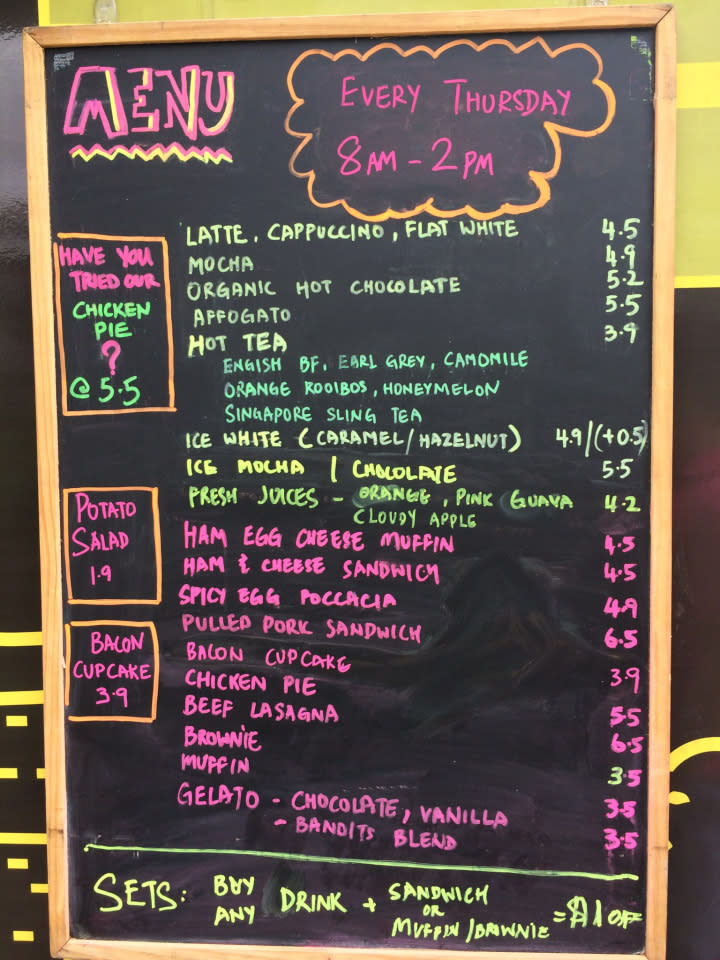 MENU
EVERY THURSDAY
8AM - 2PM
HAVE YOU
TRIED OUR
CHICKEN
PIE
?
@ 5.5
LATTE, CAPPUCCINO, FLAT WHITE 4.5
MOCHA 4.9
ORGANIC HOT CHOCOLATE 5.2
AFFOGATO 5.5
HOT TEA 3.9
ENGISH BF, EARL GREY, CAMOMILE
ORANGE ROOIBOS, HONEYMELON
SINGAPORE SLING TEA
ICE WHITE (CARAMEL/HAZELNUT) 4.9/(+0.5)
ICE MOCHA | CHOCOLATE 5.5
FRESH JUICES - ORANGE, PINK GUAVA 4.2
CLOUDY APPLE
POTATO
SALAD
1.9
HAM EGG CHEESE MUFFIN 4.5
HAM & CHEESE SANDWICH 4.5
SPICY EGG FOCCACIA 4.9
PULLED PORK SANDWICH 6.5
BACON
CUPCAKE
3.9
BACON CUPCAKE 3.9
CHICKEN PIE 5.5
BEEF LASAGNA 6.5
BROWNIE 3.5
MUFFIN 3.5
GELATO - CHOCOLATE, VANILLA 3.5
- BANDITS BLEND
SETS: BUY ANY DRINK + SANDWICH OR MUFFIN/BROWNIE = $1 OFF